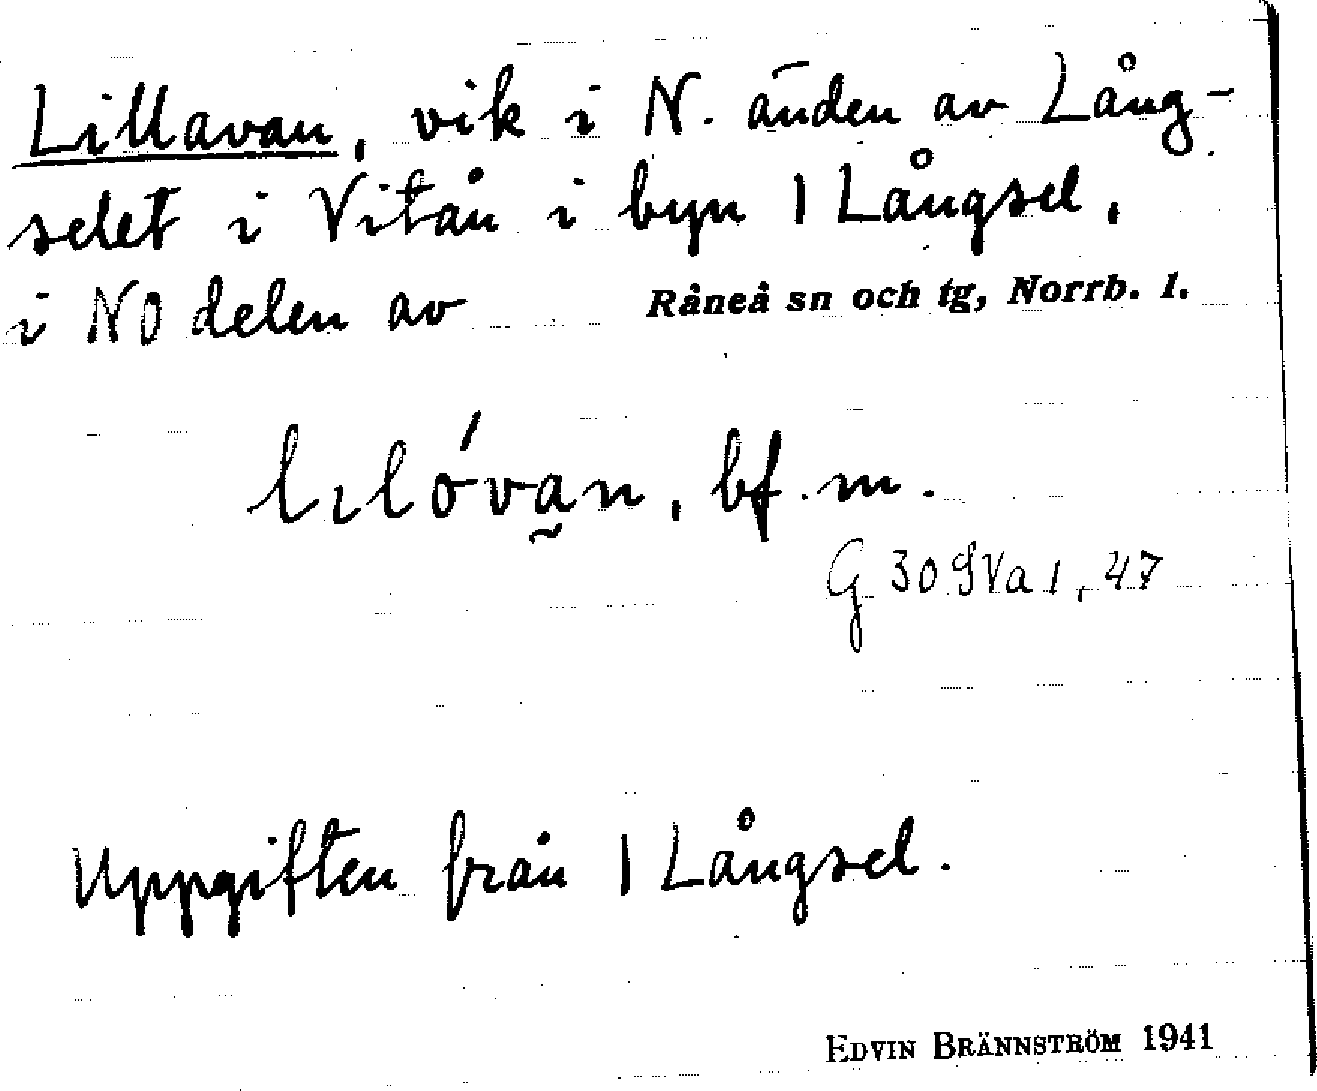 Lillavan, vik i N. änden av Lång-
selet i Vitån i byn 1 Långsel,
i NO delen av Råneå sn och tg, Norrb. l.
lılóva̰n, bf. m.
G 30 SVa 1, 47
Uppgiften från 1 Långsel.
EDVIN BRÄNNSTRÖM 1941